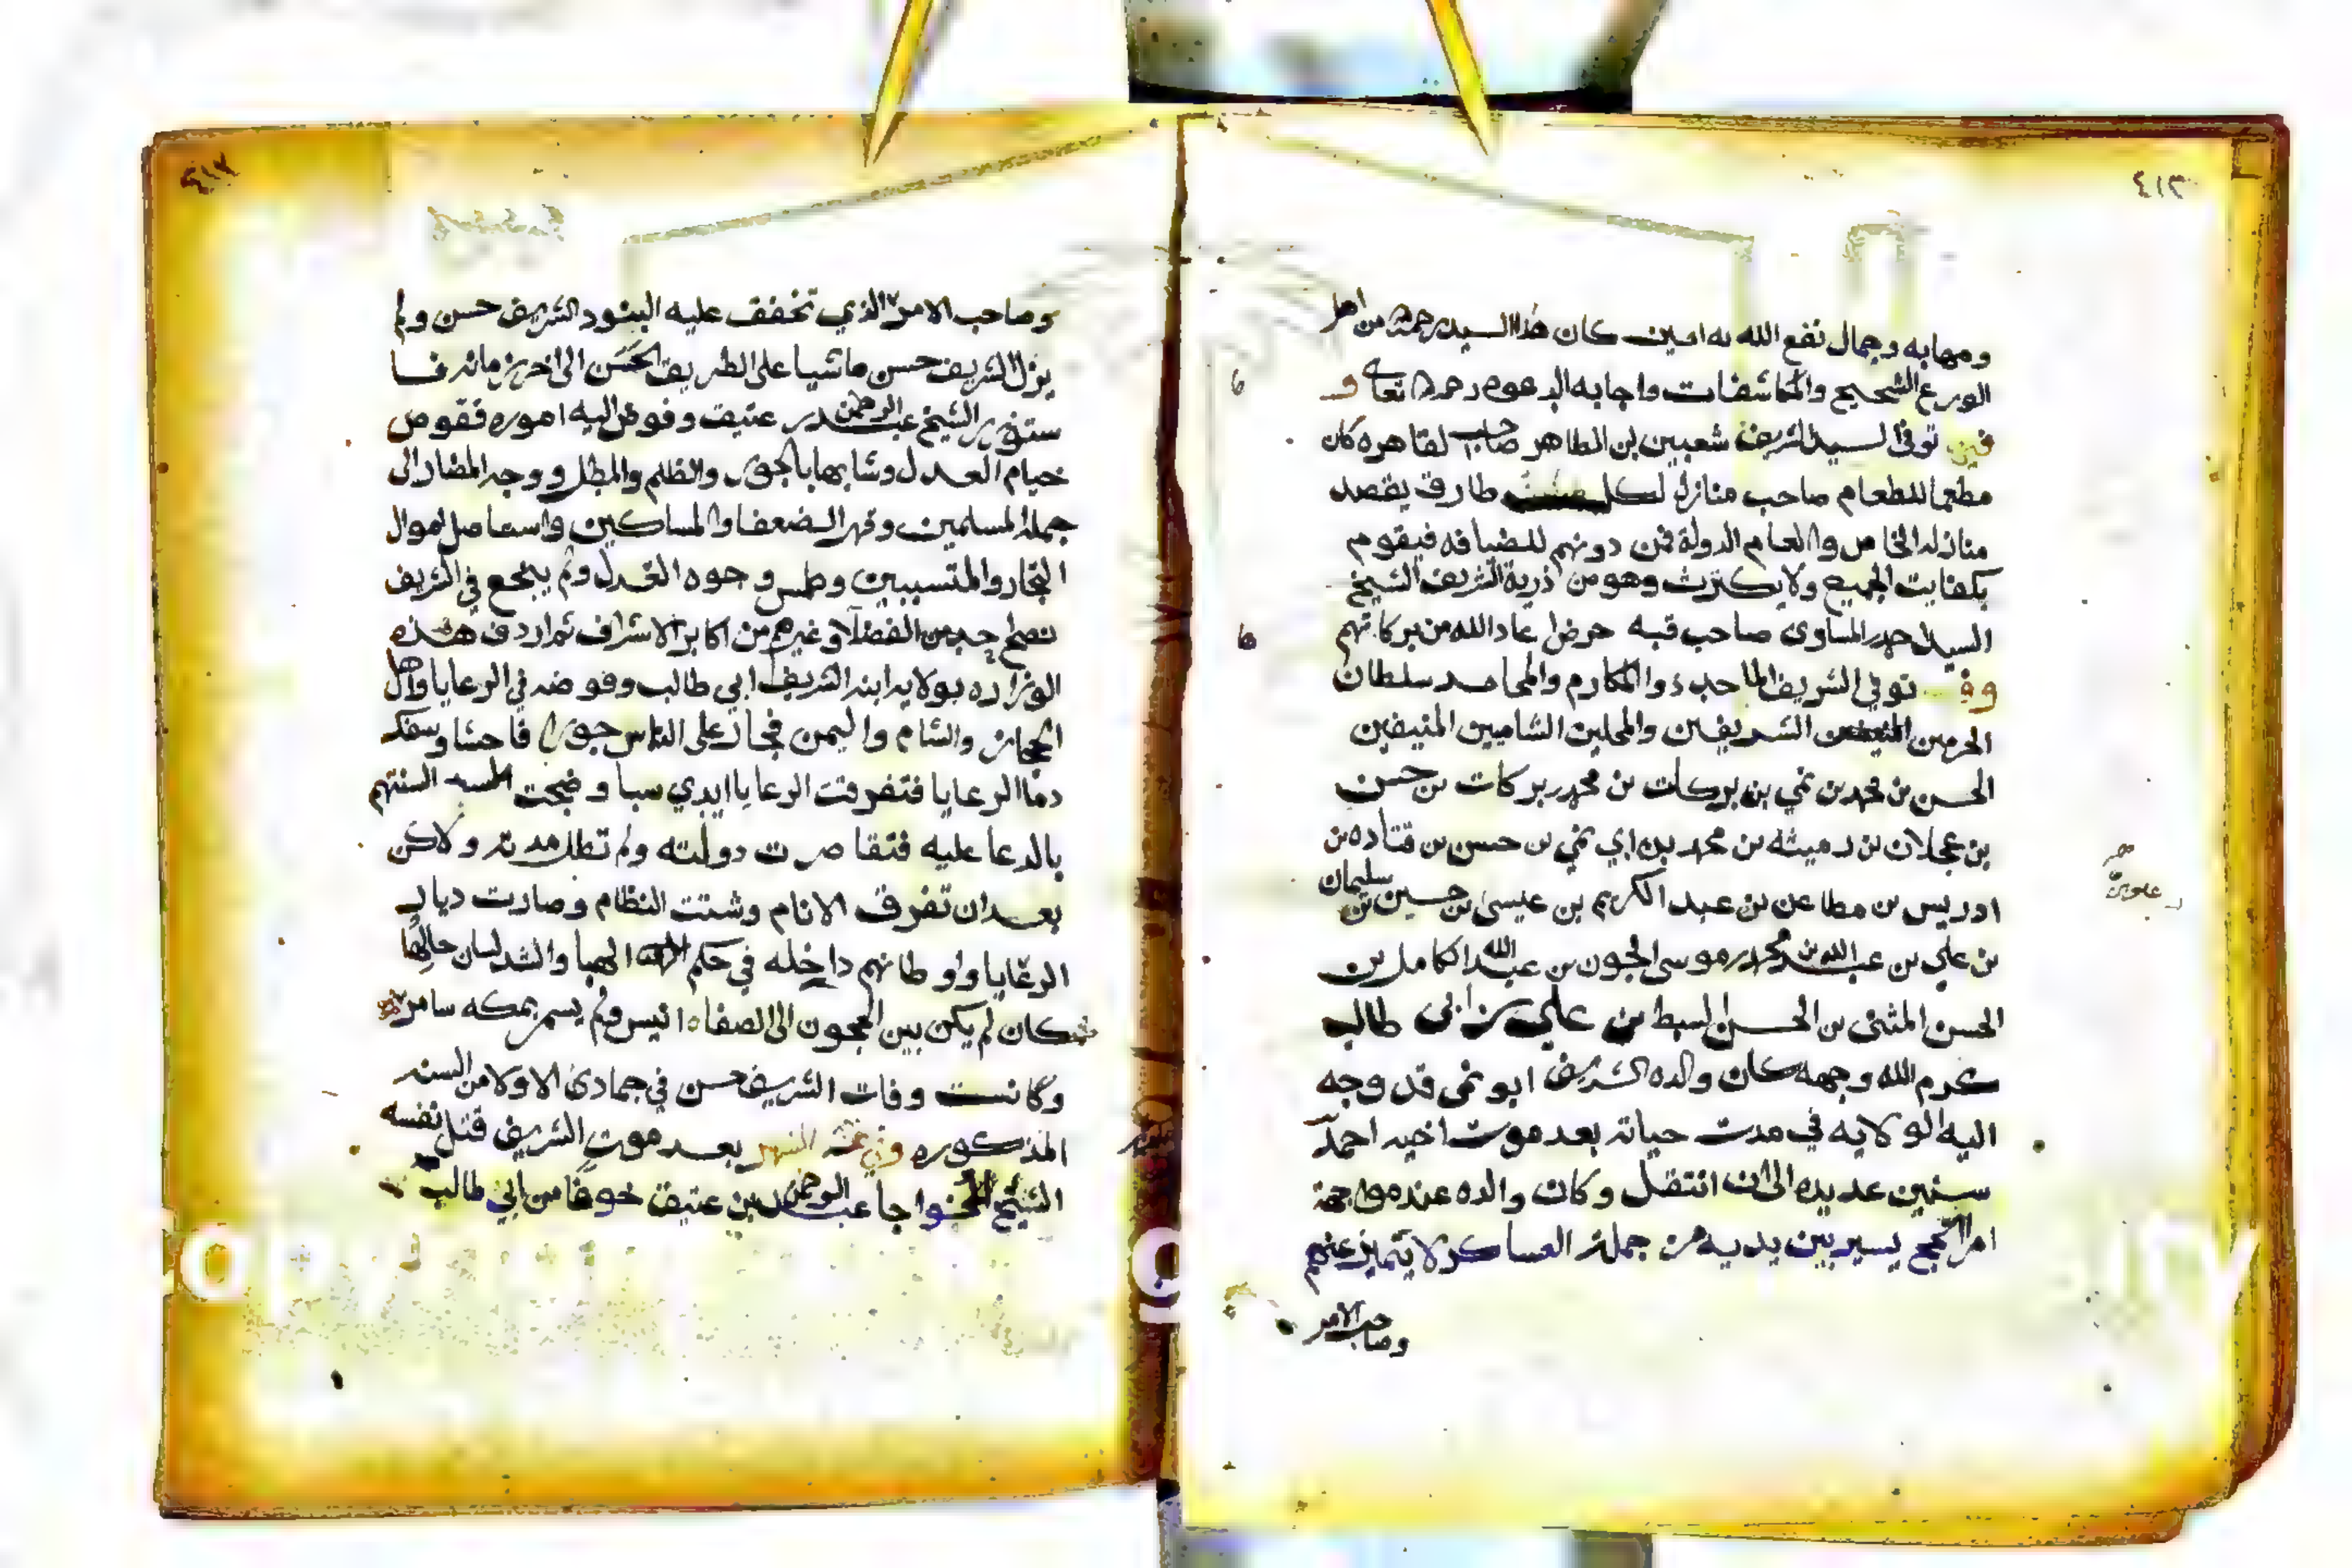 ٤١٣
ومهابه وجمال نفع الله به امين كان هذا السيد رحمه الله من اهل
الورع الشحيح والمكاشفات واجابه الدعوه رحمه الله تعالى و
فيها توفى السيد الشريف شعبين بن الطاهر صاحب القاهره كان
مطعما للطعام صاحب منازل لكل طارق يقصد
منازله الخاص والعام الدولة فمن دونهم للضيافه فيقوم
بكفايت الجميع ولا يكترث وهو من ذرية الشريف الشيخ
السيد احمد المساوى صاحب قبه حرض اعاد الله من بركاتهم
وفي توفي الشريف الماجد ذوا المكارم والمحامد سلطان
الحرمين الشريفين والمحلين الشاميين المنيفين
الحسن بن محمد بن نمي بن بركات بن محمد بركات بن حسن
بن عجلان بن رميثه بن محمد بن ابي نمي بن حسن بن قتاده بن
ادريس بن مطاعن بن عبد الكريم بن عيسى بن حسين بن سليمان
بن علي بن عبد الله بن محمد بن موسى الجون بن عبد الله الكامل بن
الحسن المثنى بن الحسن السبط بن علي بن ابى طالب
كرم الله وجهه كان والده الشريف ابو نمى قد وجه
اليه الولايه في مدت حياته بعد موت اخيه احمد
سنين عديده الى ان انتقل وكان والده عند مواجهة
امرا الحج يسير بين يديه من جملة العساكر لا يتميز عنهم
وصاحب الامر
وصاحب الامر الذي تخفق عليه البنود الشريف حسن ولم
يزل الشريف حسن ماشيا على الطريق الحسن الى اخر زمانه فا
ستوزر الشيخ عبد الرحمن بن عتيق وفوض اليه اموره فقوض
خيام العدل وشابها بالجور والظلم والمطل ووجه المضار الى
جملة المسلمين وقهر الضعفا والمساكين واستاصل اموال
التجار والمتسببين وطمس وجوه العدل ولم ينجع في الشريف
نصح احد من الفضلا وغيرهم من اكابر الاشراف ثم اردف هذه
الوزاره بولايه ابنه الشريف ابي طالب وفوضه في الرعايا واهل
الحجاز والشام واليمن فجار على الناس جورا فاحشا وسفك
دما الرعايا فتفرقت الرعايا ايدي سبا وضجت السنتهم
بالدعا عليه فتقاصرت دولته ولم تطل مدته ولاكن
بعد ان تفرق الانام وشتت النظام وصارت ديار
الرعايا واوطانهم داخله في حكم الهبا وانشد لسان حالها
كان لم يكن بين الحجون الى الصفاه انيس ولم يسمر بمكه سامر
وكانت وفات الشريف حسن في جمادى الاولا من السنه
المذكوره وفي الشهر بعد موت الشريف قتل نفسه
الشيخ الخواجا عبد الرحمن بن عتيق خوفا من ابي طالب